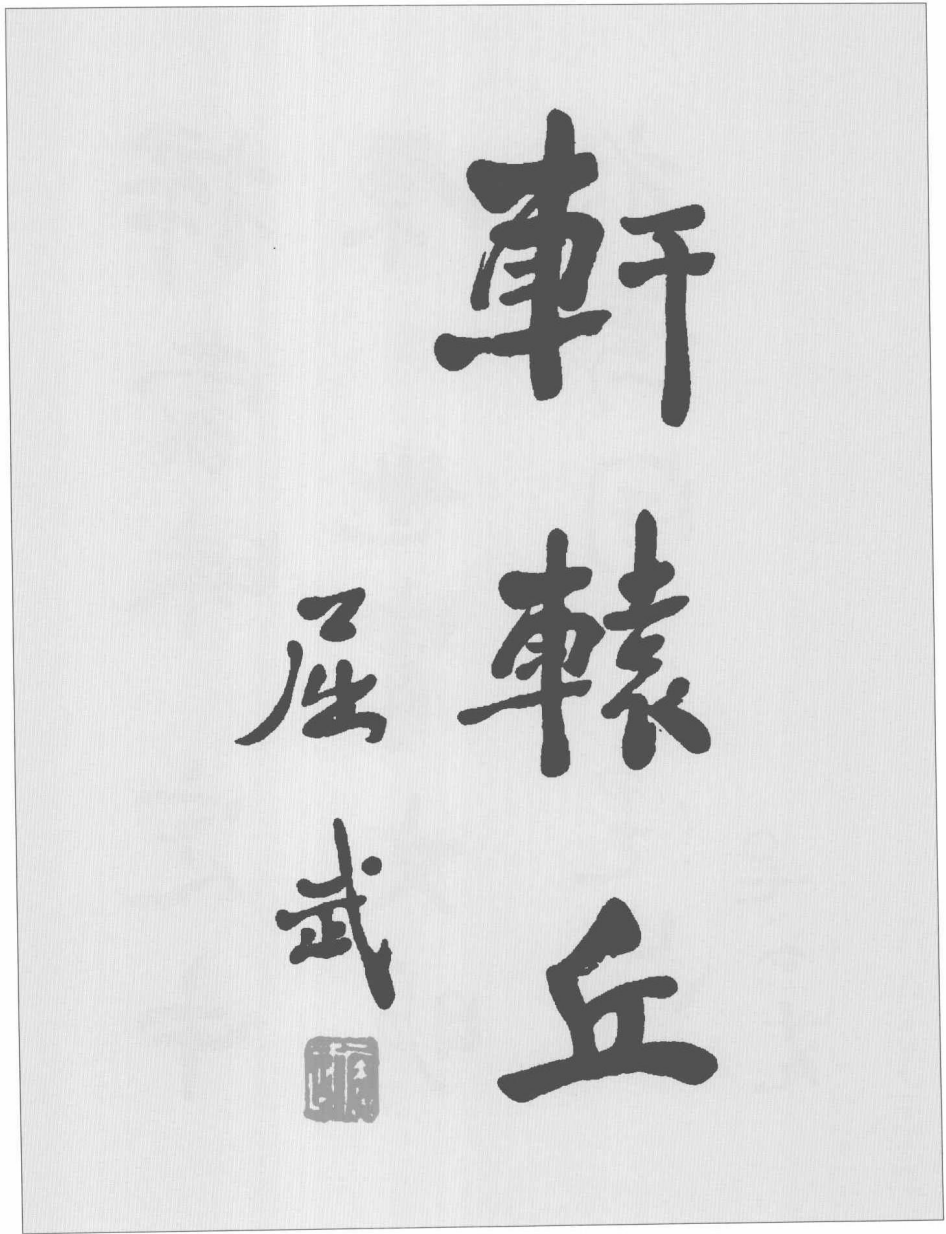 軒轅丘
屈武